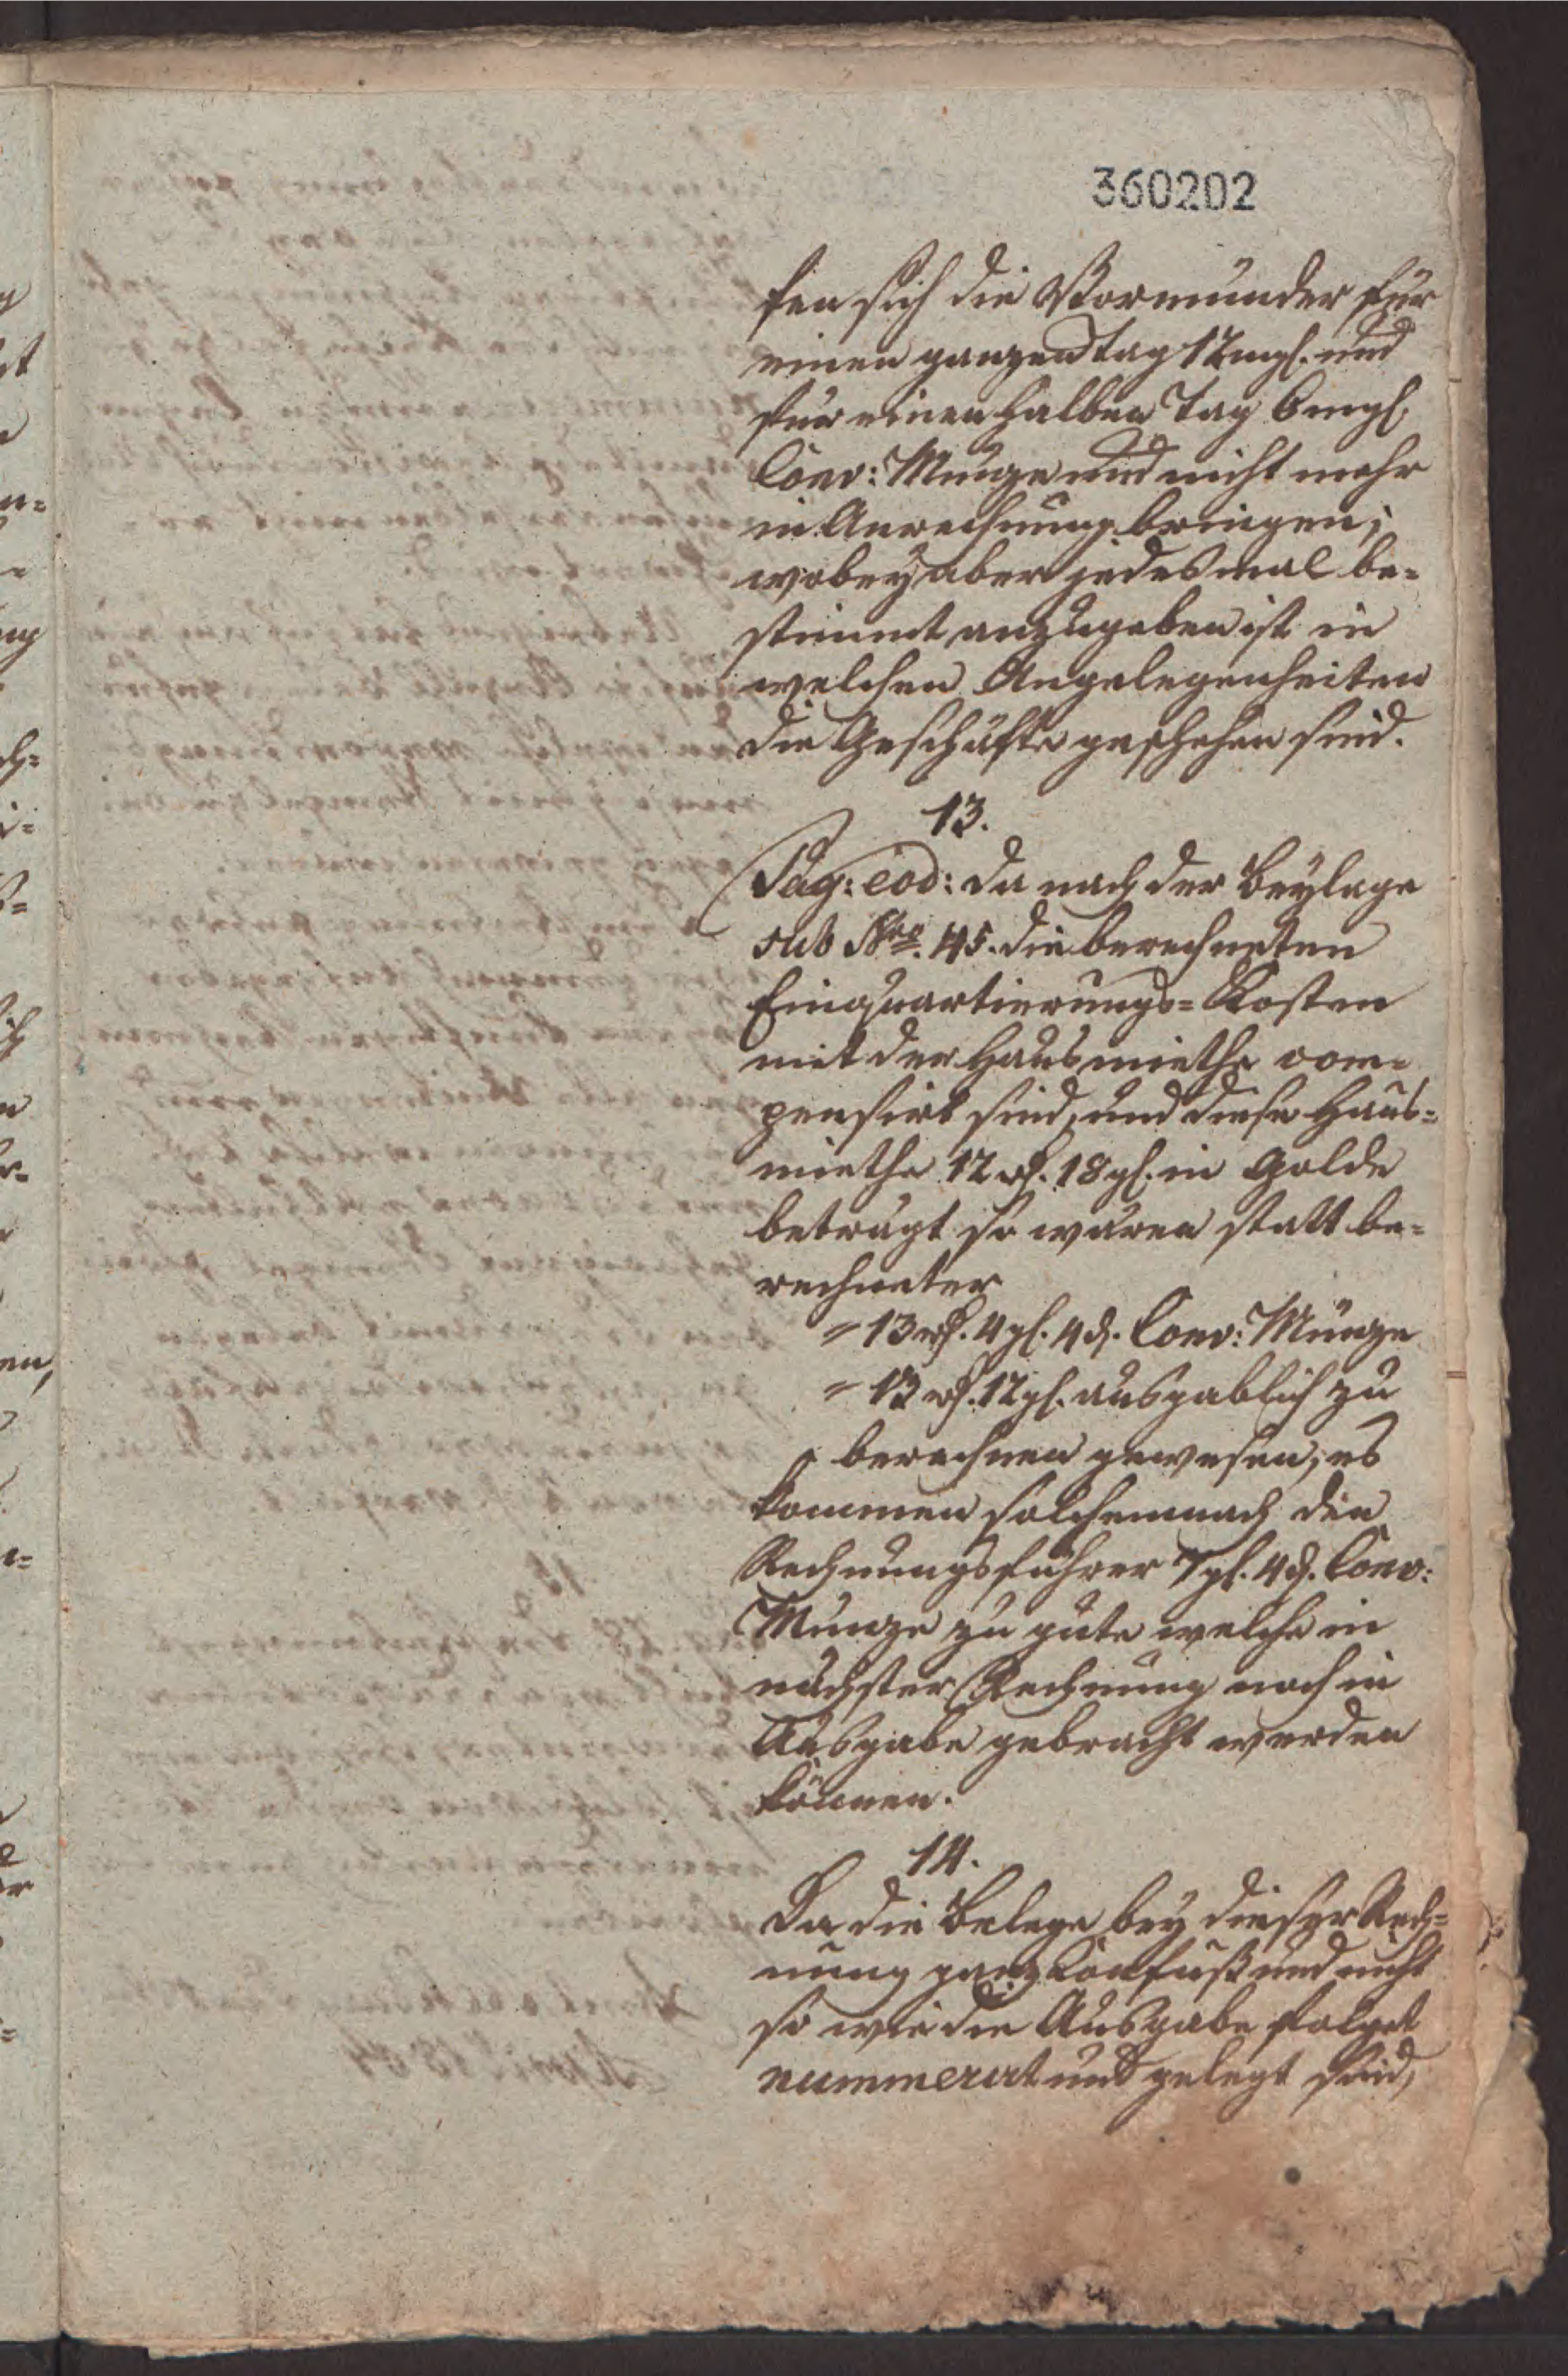 360202
fen sich die Vormünder für
einen ganzen Tag 12 mgl. und
für einen halben Tag 6 mgl.
Conv: Münze und nicht mehr
in Anrechnung bringen;
wobey aber jedesmal be=
stimmt anzugeben ist in
welchen Angelegenheiten
die Geschäfte geschehen sind.
13.
Pag: eod: da nach der Beylage
sub Nro. 45. die berechneten
Einquartierungs=Kosten
mit der Hausmiethe com=
pensirt sind, und diese Haus=
miethe 12 rth. 18 gl. in Golde
beträgt so wären statt be=
rechneter
= 13 rth. 4 gl. 4 d. Conv: Münze
= 13 rth. 12 gl. ausgablich zu
berechnen gewesen, es
kommen solchemnach den
Rechnungsführer 7 gl. 4 d. Conv:
Münze zu gute welche in
nächster Rechnung noch in
Ausgabe gebracht werden
können.
14.
Da die Belege bey dieser Rech=
nung ganz Confuß und nicht
so wie die Ausgabe folget
nummerirt und gelegt sind,